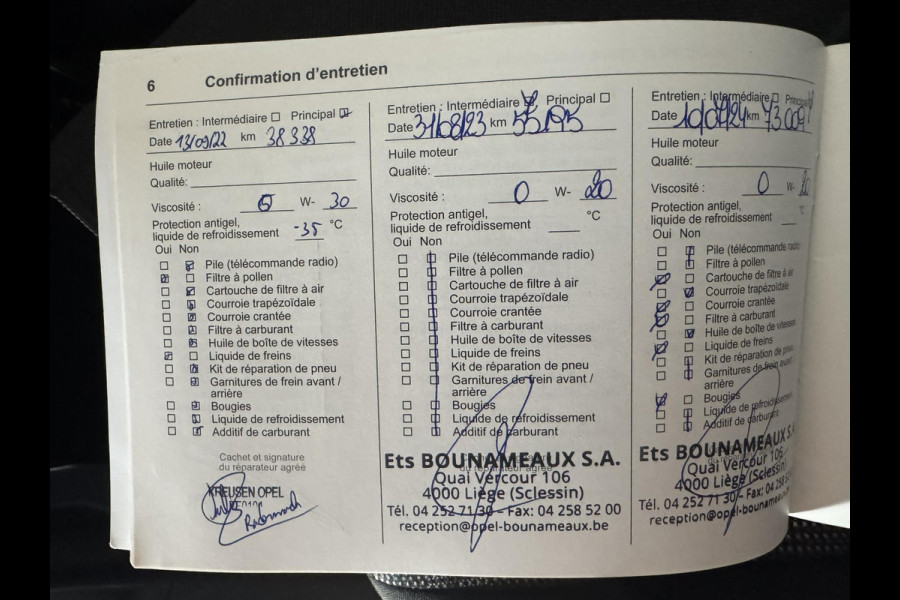 6 Confirmation d'entretien
Entretien : Intermédiaire ☐ Principal ☑
Date 13/09/22 km 38338
Huile moteur
Qualité:
Viscosité : 5 W- 30
Protection antigel,
liquide de refroidissement -35 °C
Oui Non
Pile (télécommande radio)
Filtre à pollen
Cartouche de filtre à air
Courroie trapézoïdale
Courroie crantée
Filtre à carburant
Huile de boîte de vitesses
Liquide de freins
Kit de réparation de pneu
Garnitures de frein avant /
arrière
Bougies
Liquide de refroidissement
Additif de carburant
Cachet et signature
du réparateur agréé
KREUSEN OPEL
Entretien : Intermédiaire ☑ Principal ☐
Date 31/08/23 km 55.195
Huile moteur
Qualité:
Viscosité : 0 W- 20
Protection antigel,
liquide de refroidissement °C
Oui Non
Pile (télécommande radio)
Filtre à pollen
Cartouche de filtre à air
Courroie trapézoïdale
Courroie crantée
Filtre à carburant
Huile de boîte de vitesses
Liquide de freins
Kit de réparation de pneu
Garnitures de frein avant /
arrière
Bougies
Liquide de refroidissement
Additif de carburant
du réparateur agréé
Ets BOUNAMEAUX S.A.
Quai Vercour 106
4000 Liège (Sclessin)
Tél. 04 252 71 30 - Fax: 04 258 52 00
reception@opel-bounameaux.be
Entretien : Intermédiaire ☐
Date km 73.009
Huile moteur
Qualité:
Viscosité : 0 W-
Protection antigel,
liquide de refroidissement
Oui Non
Pile (télécommande radio)
Filtre à pollen
Cartouche de filtre à air
Courroie trapézoïdale
Courroie crantée
Filtre à carburant
Huile de boîte de vitesses
Liquide de freins
Kit de réparation de pneu
Garnitures de frein avant
arrière
Bougies
Liquide de refroidissement
Additif de carburant
Ets BOUNAMEAUX S.A.
Quai Vercour 106
4000 Liège (Sclessin)
Tél. 04 252 71 30 - Fax: 04 258
reception@opel-bouname